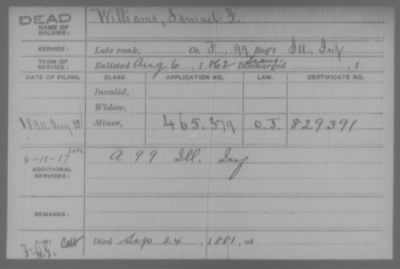 DEAD
NAME OF SOLDIER: Williams, Samuel F.
SERVICE: Late rank, Co. F, 99 Reg't Ill. Inf
TERM OF SERVICE: Enlisted Aug 6, 1862 Discharged , 1
DATE OF FILING. CLASS. APPLICATION NO. LAW. CERTIFICATE NO.
Invalid,
Widow,
1890 Aug 12 Minor, 465.579 O.J. 829391
ADDITIONAL SERVICES: A 99 Ill. Inf
REMARKS:
Died Sep 24, 1881, at